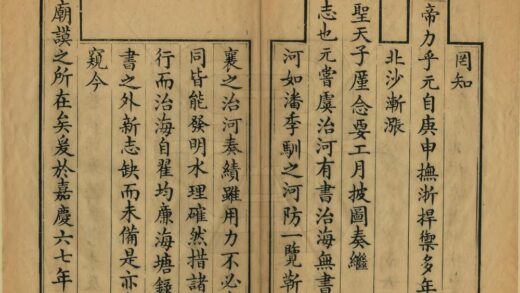 罔知
帝力乎元自庚申撫浙捍禦多年
北沙漸漲
聖天子厪念要工月披圖奏繼
志也元嘗虞治河有書治海無書
河如潘季馴之河防一覽靳
襄之治河奏績雖用力不必
同皆能發明水理確然措諸
行而治海自翟均廉海塘録
書之外新志缺而未備是亦
窺今
廟謨之所在矣爰於嘉慶六七年